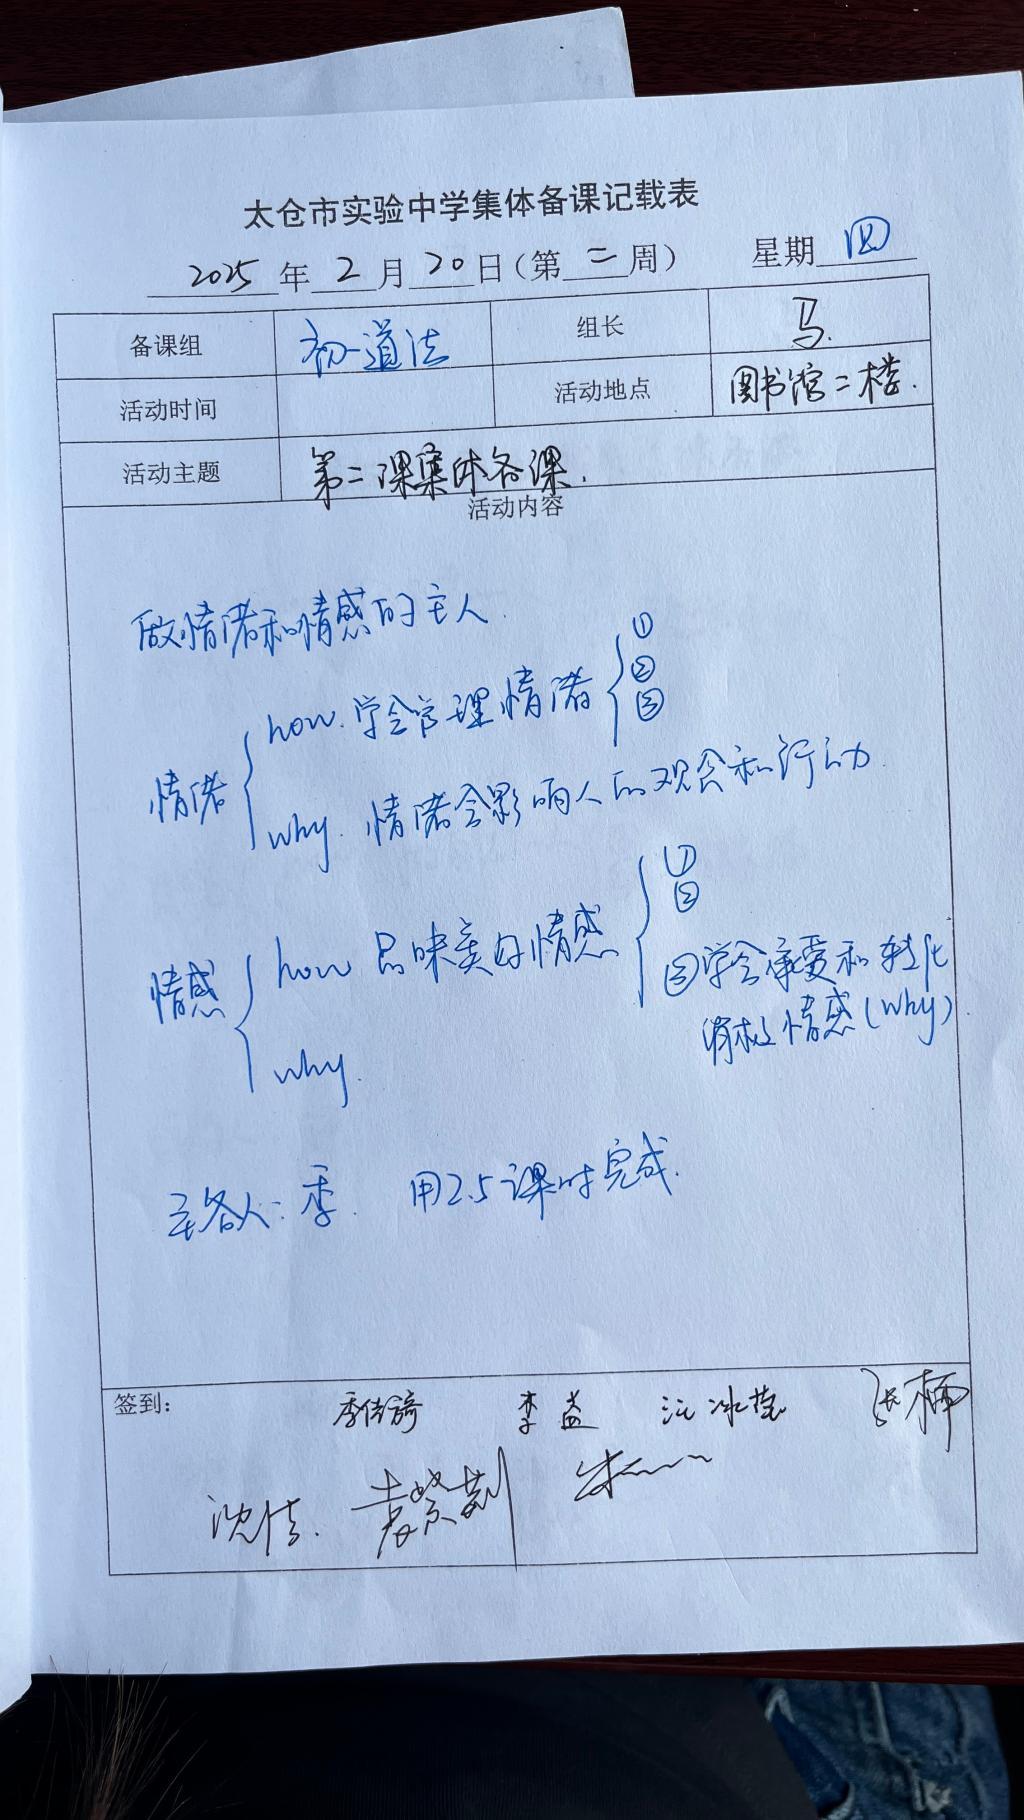 太仓市实验中学集体备课记载表
2025年2月20日(第二周) 星期四
备课组 初一道法 组长 马.
活动时间 活动地点 图书馆二楼.
活动主题 第二课集体备课.
活动内容
做情绪和情感的主人.
情绪 how. 学会管理情绪 ① ② ③
why. 情绪会影响人的观念和行动.
情感 how 品味美好情感 ① ②
③学会承受和转化
消极情感(why).
why.
主备人:季. 用2.5课时完成.
签到: 李益
沈